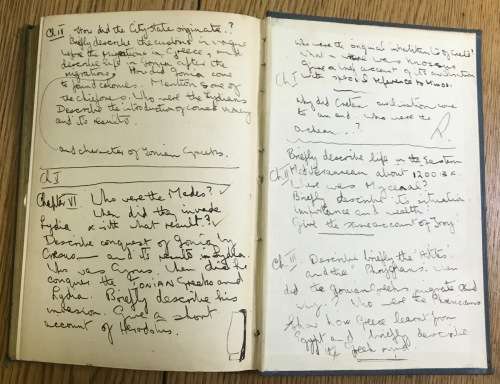 Ch II How did the City State originate..?
Briefly describe the customs in vogue
before the migrations in Greece; and
describe life in Ionia after the
migrations. How did Ionia come
to found colonies. Mention some of
the chief ones. Who were the Lydians
Describe the introduction of coined money
and its results.
and character of Ionian Greeks.
Ch I
Chapter VI Who were the Medes?
When did they invade
Lydia & with what result?
Describe conquest of Ionia by
Croesus and its results in Lydia.
Who was Cyrus. When did he
conquer the IONIAN Greeks and
Lydia. Briefly describe his
invasion. Give a short
account of Herodotus.
Who were the original inhabitants of Greece?
What & where was Knossos
Give a brief account of its civilization
Ch I with special reference to Minos.
Why did Cretan civilization come
to an end. Who were the
Achaean..?
Briefly describe life in the Eastern
Ch II Mediterranean about 1200 B.C.
Where was Mycenae?
Briefly describe its situation
importance and wealth
Give the account of Troy
Ch III Describe briefly the
and the When
did the Ionian Greeks migrate and
why? Who were the Phoenicians
Show how Greece learnt from
Egypt and briefly describe
the Greek